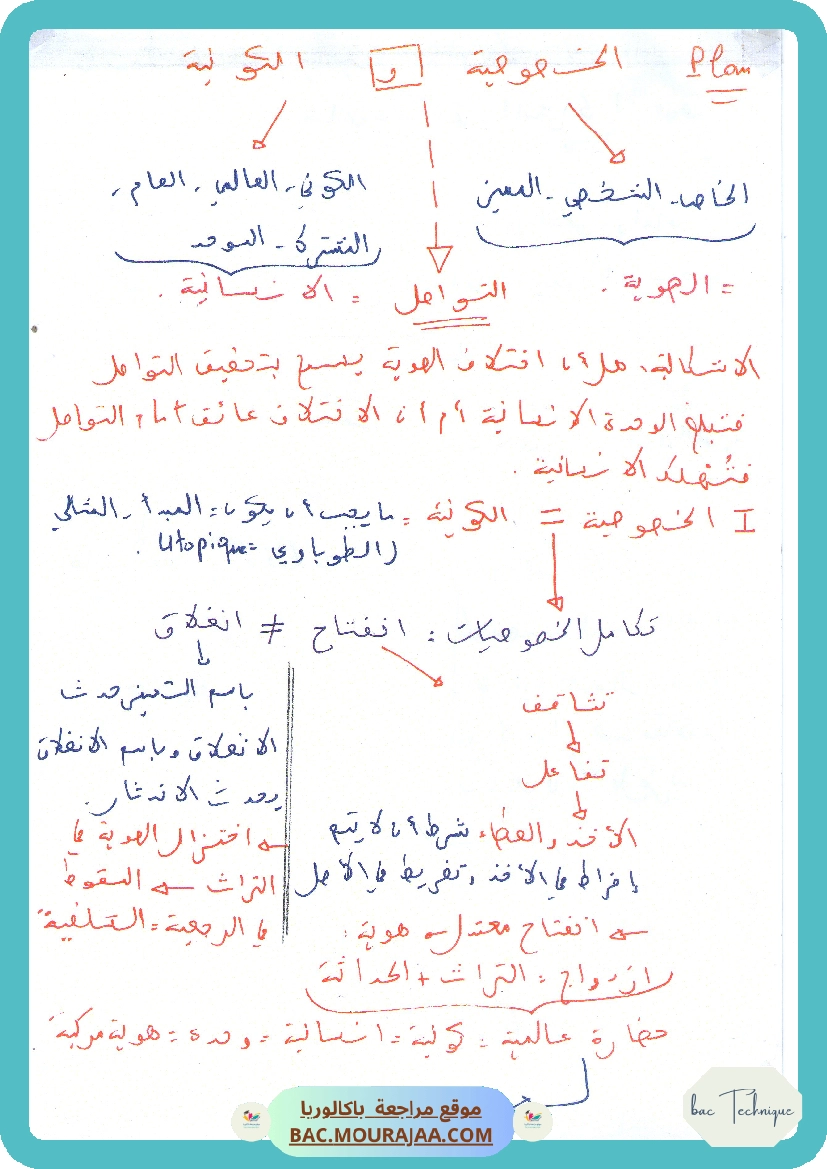 Plan الخصوصية و الكونية
الخاص - الشخصي - المعين
الكوني - العالمي - العام -
المشترك - الموحد
= الهوية .
التواصل
= الإنسانية .
الاشكالية: هل أن اختلاف الهوية يسمح بتحقيق التواصل
فنبلغ الوحدة الإنسانية أم أن الاختلاف عائق أمام التواصل
فتُستهلك الإنسانية .
I الخصوصية = الكونية = ما يجب أن يكون = المبدأ - المثالي
(الطوباوي = utopique .
تكامل الخصوصيات : انفتاح ≠ انغلاق
تثاقف
تفاعل
الأخذ والعطاء شرط أن لا يتم
إفراط في الأخذ وتفريط في الأصل
انفتاح معتدل هوية :
ازدواج = التراث + الحداثة
باسم التميز حدث
الانغلاق وباسم الانغلاق
يحدث الاندثار .
اختزال الهوية في
التراث السقوط
في الرجعية = "السلفية"
حضارة عالمية = كونية = إنسانية = وحدة = هوية مركبة
موقع مراجعة باكالوريا
BAC.MOURAJAA.COM
bac Technique